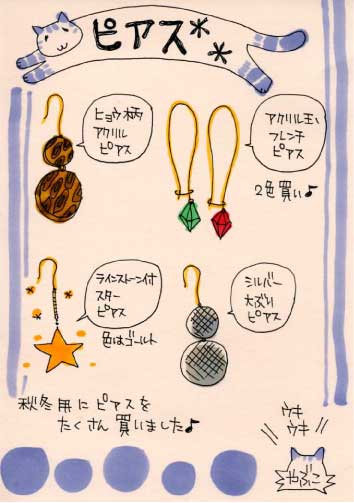 ピアス**
ヒョウ柄
アクリル
ピアス
アクリル玉い
フレンチ
ピアス
2色買い♪
ラインストーン付
スター
ピアス
色はゴールド
シルバー
大ぶり
ピアス
秋冬用にピアスを
たくさん買いました♪
ウキ
ウキ
やぶこ